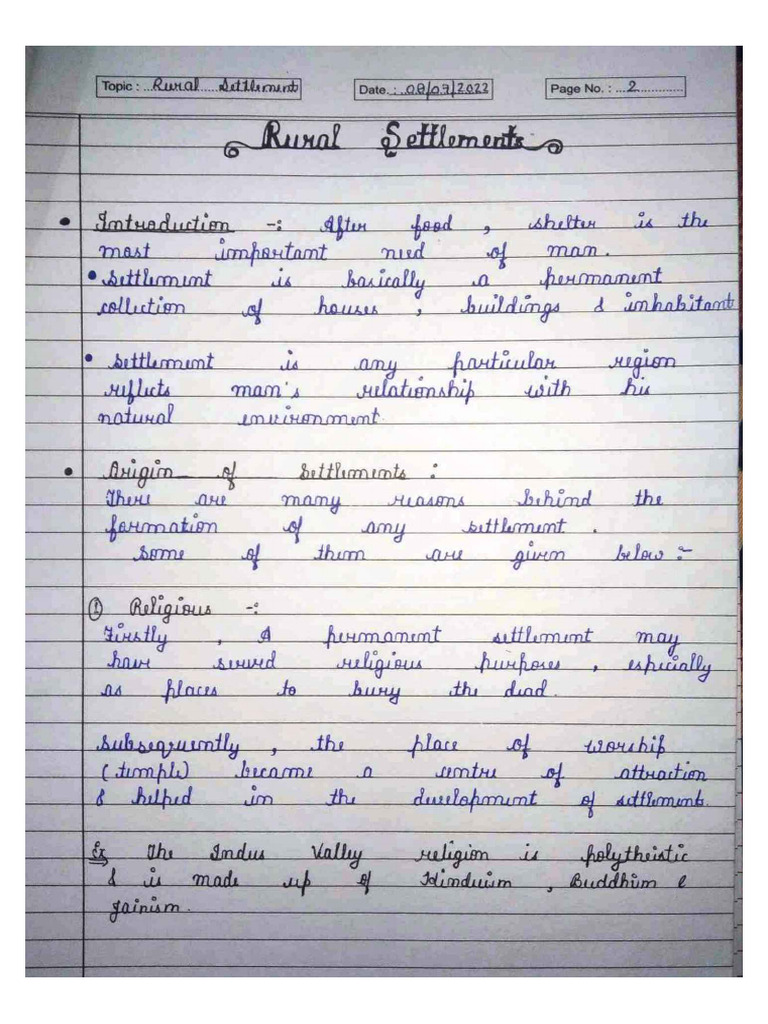 Topic : ...Rural.....Settlement
Date. : ..08/09/2022
Page No. : ...2.............
Rural Settlements
• Introduction -: After food , shelter is the
most important need of man.
• Settlement is basically a permanent
collection of houses , buildings & inhabitant
• Settlement is any particular region
reflects man's relationship with his
natural environment.
• Origin of Settlements :
There are many reasons behind the
formation of any settlement .
Some of them are given below :-
① Religious -:
Firstly , A permanent settlement may
have served religious purposes , especially
as places to bury the dead.
Subsequently , the place of worship
(temple) became a centre of attraction
& helped in the development of settlement.
Ex The Indus Valley religion is polytheistic
& is made up of Hinduism , Buddhim &
Jainism.